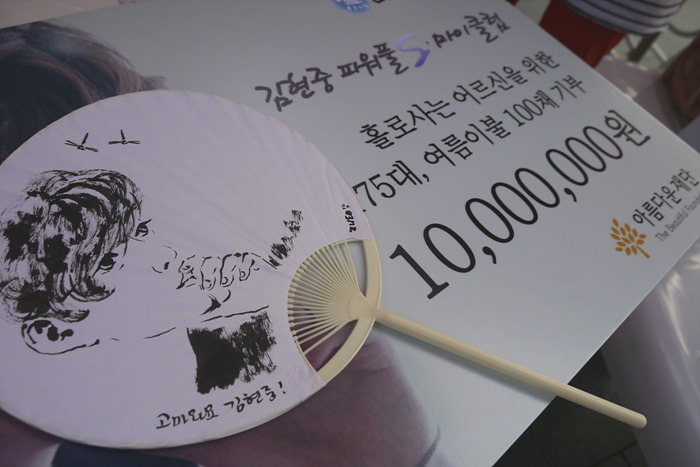 김현중 파워풀 S.마이클럽
홀로사는 어르신을 위한
75대, 여름이불 100채 기부
10,000,000원
아름다운재단
The Beautiful
고마워요 김현중!